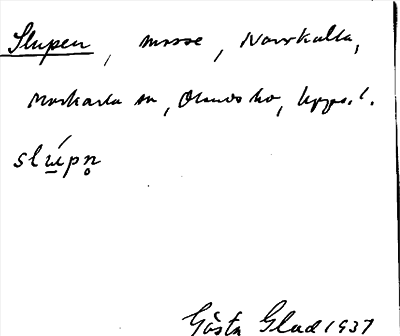 Slupen, mosse, Norrkalla,
Markarla sn, Olands hd, Upps. l.
slú̱pn̥
Gösta Glad 1937